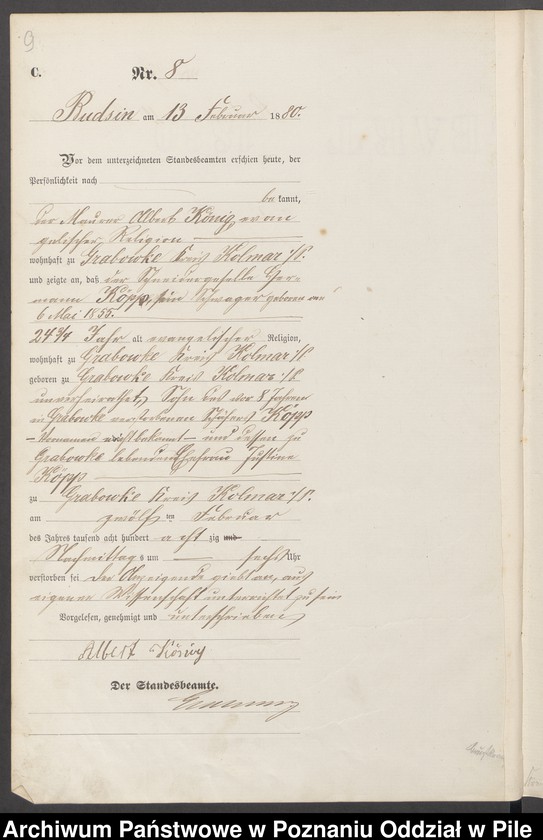 9
C.
Nr. 8
Budsin am 13 Februar 1880.
Vor dem unterzeichneten Standesbeamten erschien heute, der
Persönlichkeit nach
bekannt,
der Maurer Albert König, evan
gelischer Religion
wohnhaft zu Grabowke Kreis Kolmar i/P.
und zeigte an, daß der Schneidergeselle Her-
mann Köpp, sein Schwager geboren am
6 Mai 1855.
24 3/4 Jahr alt evangelischer Religion,
wohnhaft zu Grabowke Kreis Kolmar i/P
geboren zu Grabowke Kreis Kolmar i/P
unverheirathet, Sohn des vor 8 Jahren
in Grabowke verstorbenen Köpp
— Vornamen nicht bekannt — und dessen zu
Grabowke lebenden Ehefrau Justine
Köpp
zu Grabowke Kreis Kolmar i/P.
am zwölf ten Februar
des Jahres tausend acht hundert acht zig und
Nachmittags um sechs Uhr
verstorben sei Der Anzeigende giebt an, aus
eigener Wissenschaft unterrichtet zu sein
Vorgelesen, genehmigt und unterschrieben
Albert König
Der Standesbeamte.
Archiwum Państwowe w Poznaniu Oddział w Pile